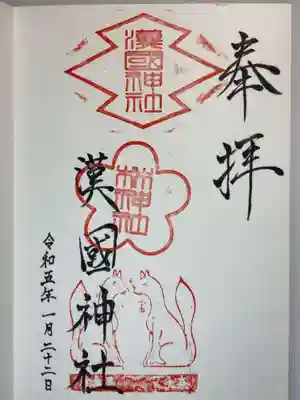 奉拝
漢國神社
林神社
漢國神社
令和五年一月二十二日